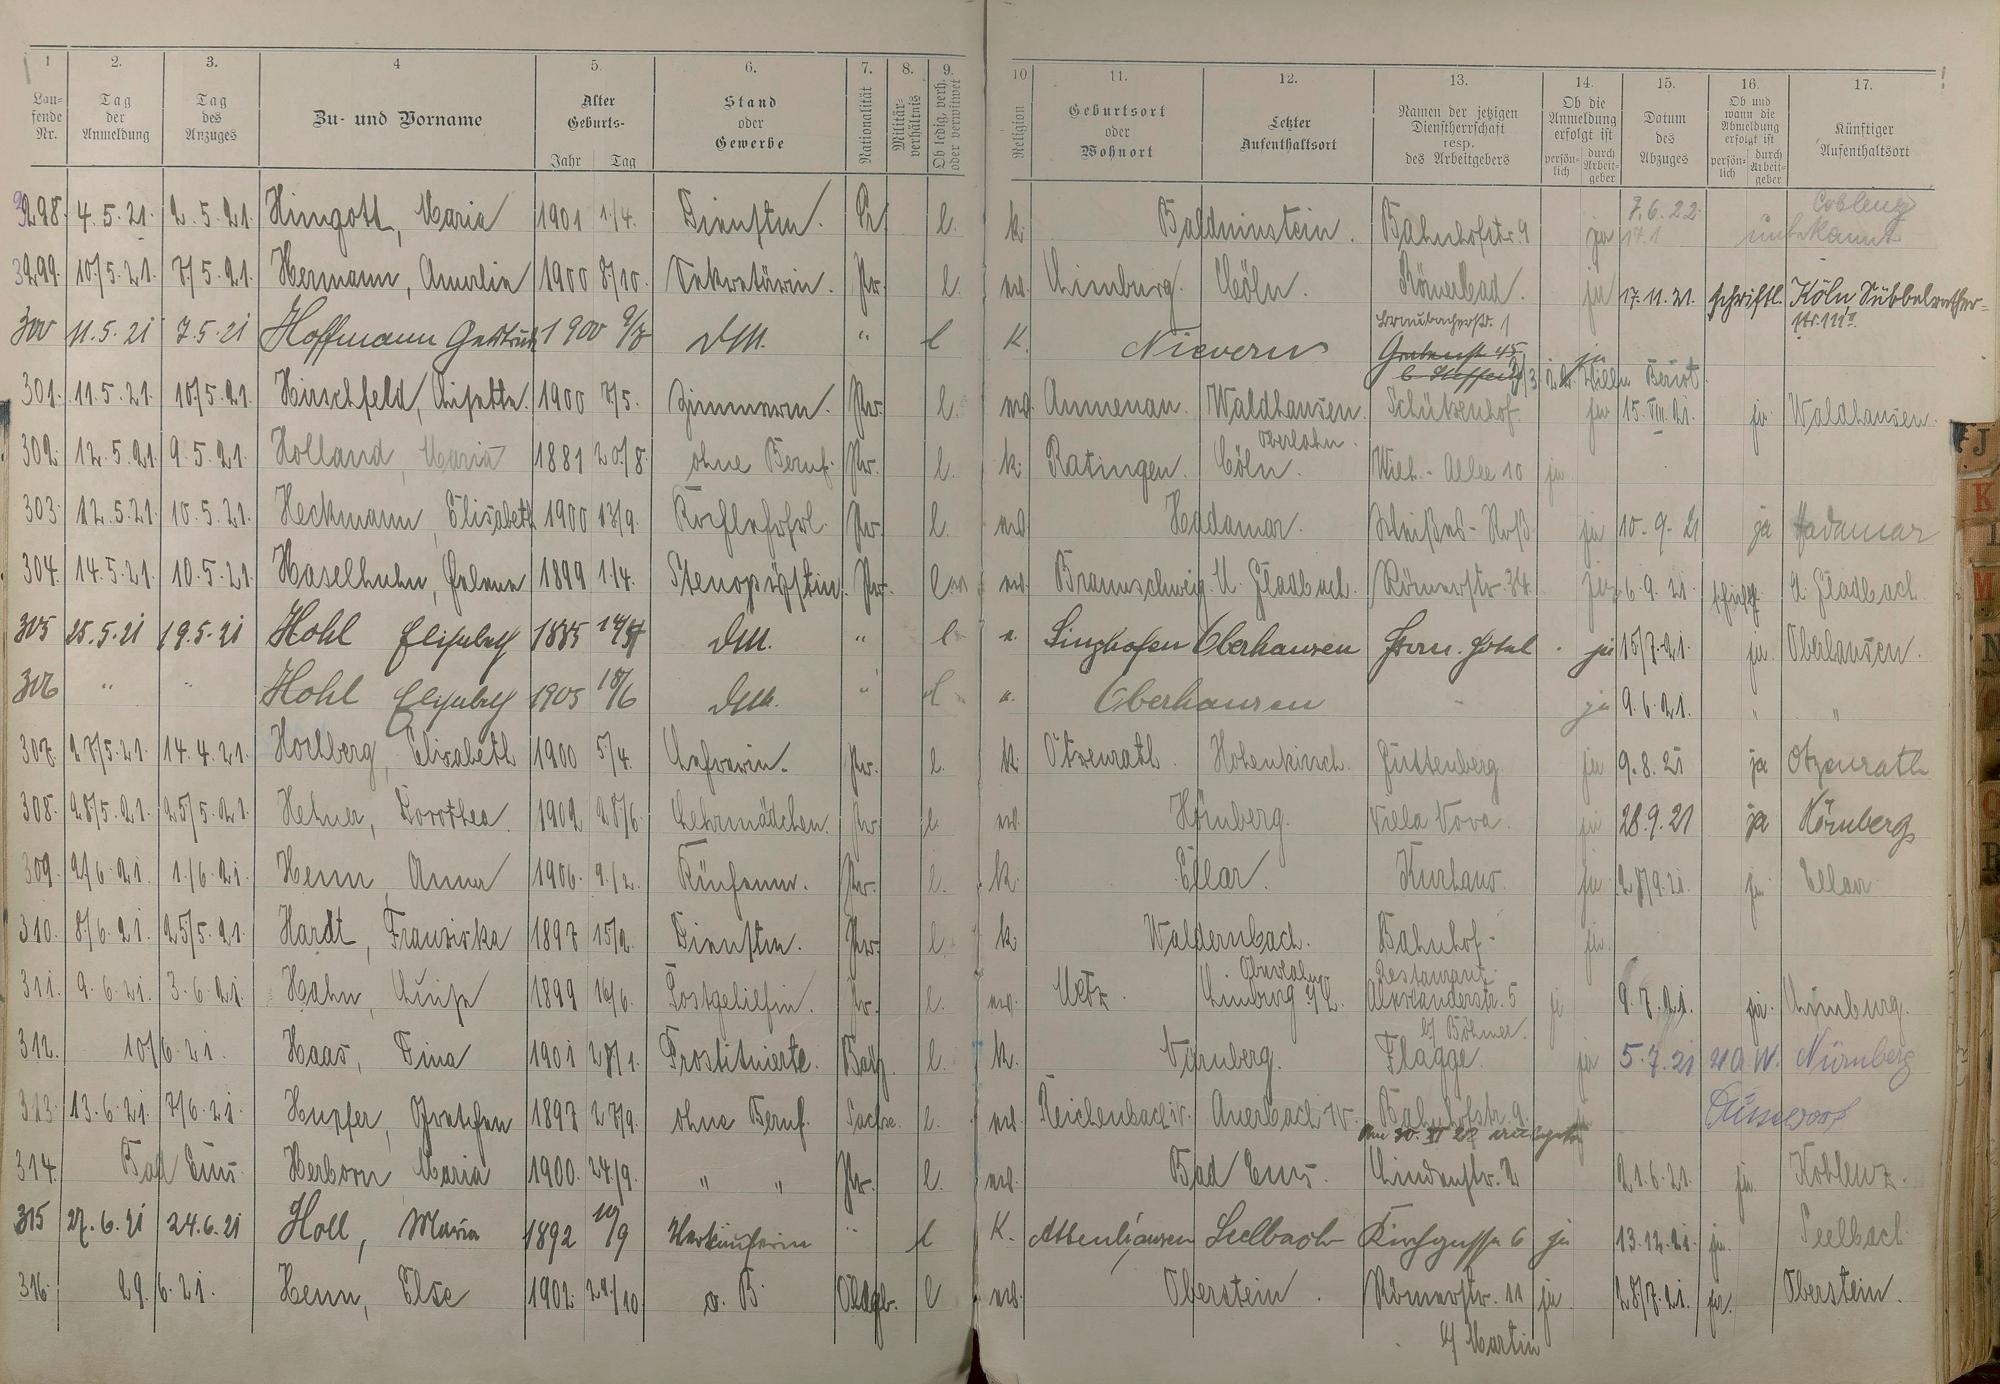 1 2. 3. 4 5. 6. 7. 8. 9. 10 11. 12. 13. 14. 15. 16. 17.
Laufende Nr. Tag der Anmeldung Tag des Anzuges Zu- und Vorname Alter Geburts- Jahr Tag Stand oder Gewerbe Nationalität Militärverhältnis Ob ledig, verh. oder verwitwet Religion Geburtsort oder Wohnort Letzter Aufenthaltsort Namen der jetzigen Dienstherrschaft resp. des Arbeitgebers Ob die Anmeldung erfolgt ist persönlich durch Arbeitgeber Datum des Abzuges Ob und wann die Abmeldung erfolgt ist persönlich durch Arbeitgeber Künftiger Aufenthaltsort
7.6.22. Coblenz
298. 4.5.21. 2.5.21. Himgott, Maria 1901 1/4. Dienstm. Pr. l. k. Balduinstein. Bahnhofstr. 9 ja 17.1 unbekannt
299. 10/5.21. 7/5.21. Hermann, Amalie 1900 8/10. Sekretärin. Pr. l. ev. Limburg. Cöln. Römerbad. ja 17.11.21. schriftl. Köln Sübbelrather-
str. 111
300 11.5.21 7.5.21 Hoffmann Gertrud 1900 9/7 DM. " l K. Nievern Braubacherstr. 1 Grabenstr 45 ja
301. 11.5.21. 10/5.21. Hirschfeld, Lisette. 1900 7/5. Zimmerm. Pr. l. ev. Aumenau. Waldhausen. Schützenhof. ja 15.VIII.21. ja Waldhausen.
Oberlahn.
302. 12.5.21. 9.5.21. Holland, Maria 1881 20/8. ohne Beruf. Pr. l. k. Ratingen. Cöln. Wilh.-Allee 10 ja
303. 12.5.21. 10.5.21. Heckmann, Elisabeth 1900 13/9. Kochlehrfrl. Pr. l. ev. Hadamar. Weißes-Roß ja 10.9.21 ja Hadamar
304. 14.5.21. 10.5.21. Haselhuhn, Helene 1899 1/4. Stenotypistin. Pr. l. ev. Braunschweig. M. Gladbach. Römerstr. 34. ja 6.9.21. schriftl. M. Gladbach.
305 25.5.21 19.5.21 Hohl Elisabeth 1885 DM. " l Singhofen Oberhausen Hotel ja 15/7.21. ja. Oberhausen.
306 " " Hohl Elisabeth 1905 18/6 DM. " l Oberhausen " ja 9.6.21. " "
307. 27/5.21. 14.4.21. Horlberg, Elisabeth 1900 5/4. Lehrerin. Pr. l. k. Otzenrath. Hohenkirch. Guttenberg. ja 9.8.21 ja Otzenrath
308. 28/5.21. 25/5.21. Hehner, Dorothea. 1902 28/6. Lehrmädchen. Pr. l. ev. Hömberg. Villa Nova. ja 28.9.21 ja Hömberg
309. 2/6.21. 1/6.21. Henn, Anna 1906. 9/2. Küchenm. Pr. l. k. Ellar. Kurhaus. ja 28/9.21. ja Ellar
310. 8/6.21. 25/5.21. Hardt, Franziska 1897 15/2. Dienstm. Pr. l. k. Waldernbach. Bahnhof- ja.
Oberlahn Restaurant.
311. 9.6.21. 3.6.21. Hahn, Luise 1899 16/6. Postgehilfin. Pr. l. ev. Metz. Limburg a/L. Alexanderstr. 5 ja 9.7.21. ja. Limburg.
b/ Böhmer.
312. 10/6.21. Haas, Dina 1901 28/1. Prostituierte. Bay. l. k. Nürnberg. Flagge. ja 5.7.21 Nürnberg
313. 13.6.21. 7/6.21. Hupfer, Gretchen 1897 27/9. ohne Beruf. Sachse. l. ev. Reichenbach i/V. Auerbach i/V. Bahnhofstr. 9. Düsseldorf
314. Bad Ems. Herborn Maria 1900. 24/9. " " Pr. l. ev. Bad Ems. Lindenstr. 2 21.6.21. ja. Koblenz.
315 27.6.21 24.6.21 Holl, Maria 1892 Verkäuferin " l K. Attenhausen Seelbach Kirchgasse 6 ja 13.12.21. ja. Seelbach
316. 29.6.21. Henn, Else 1902. 24/10. o. B. Oldgb. l ev. Oberstein. Römerstr. 11 ja 28/7.21. ja. Oberstein.
b/ Martin
J
K
L
M
N
O